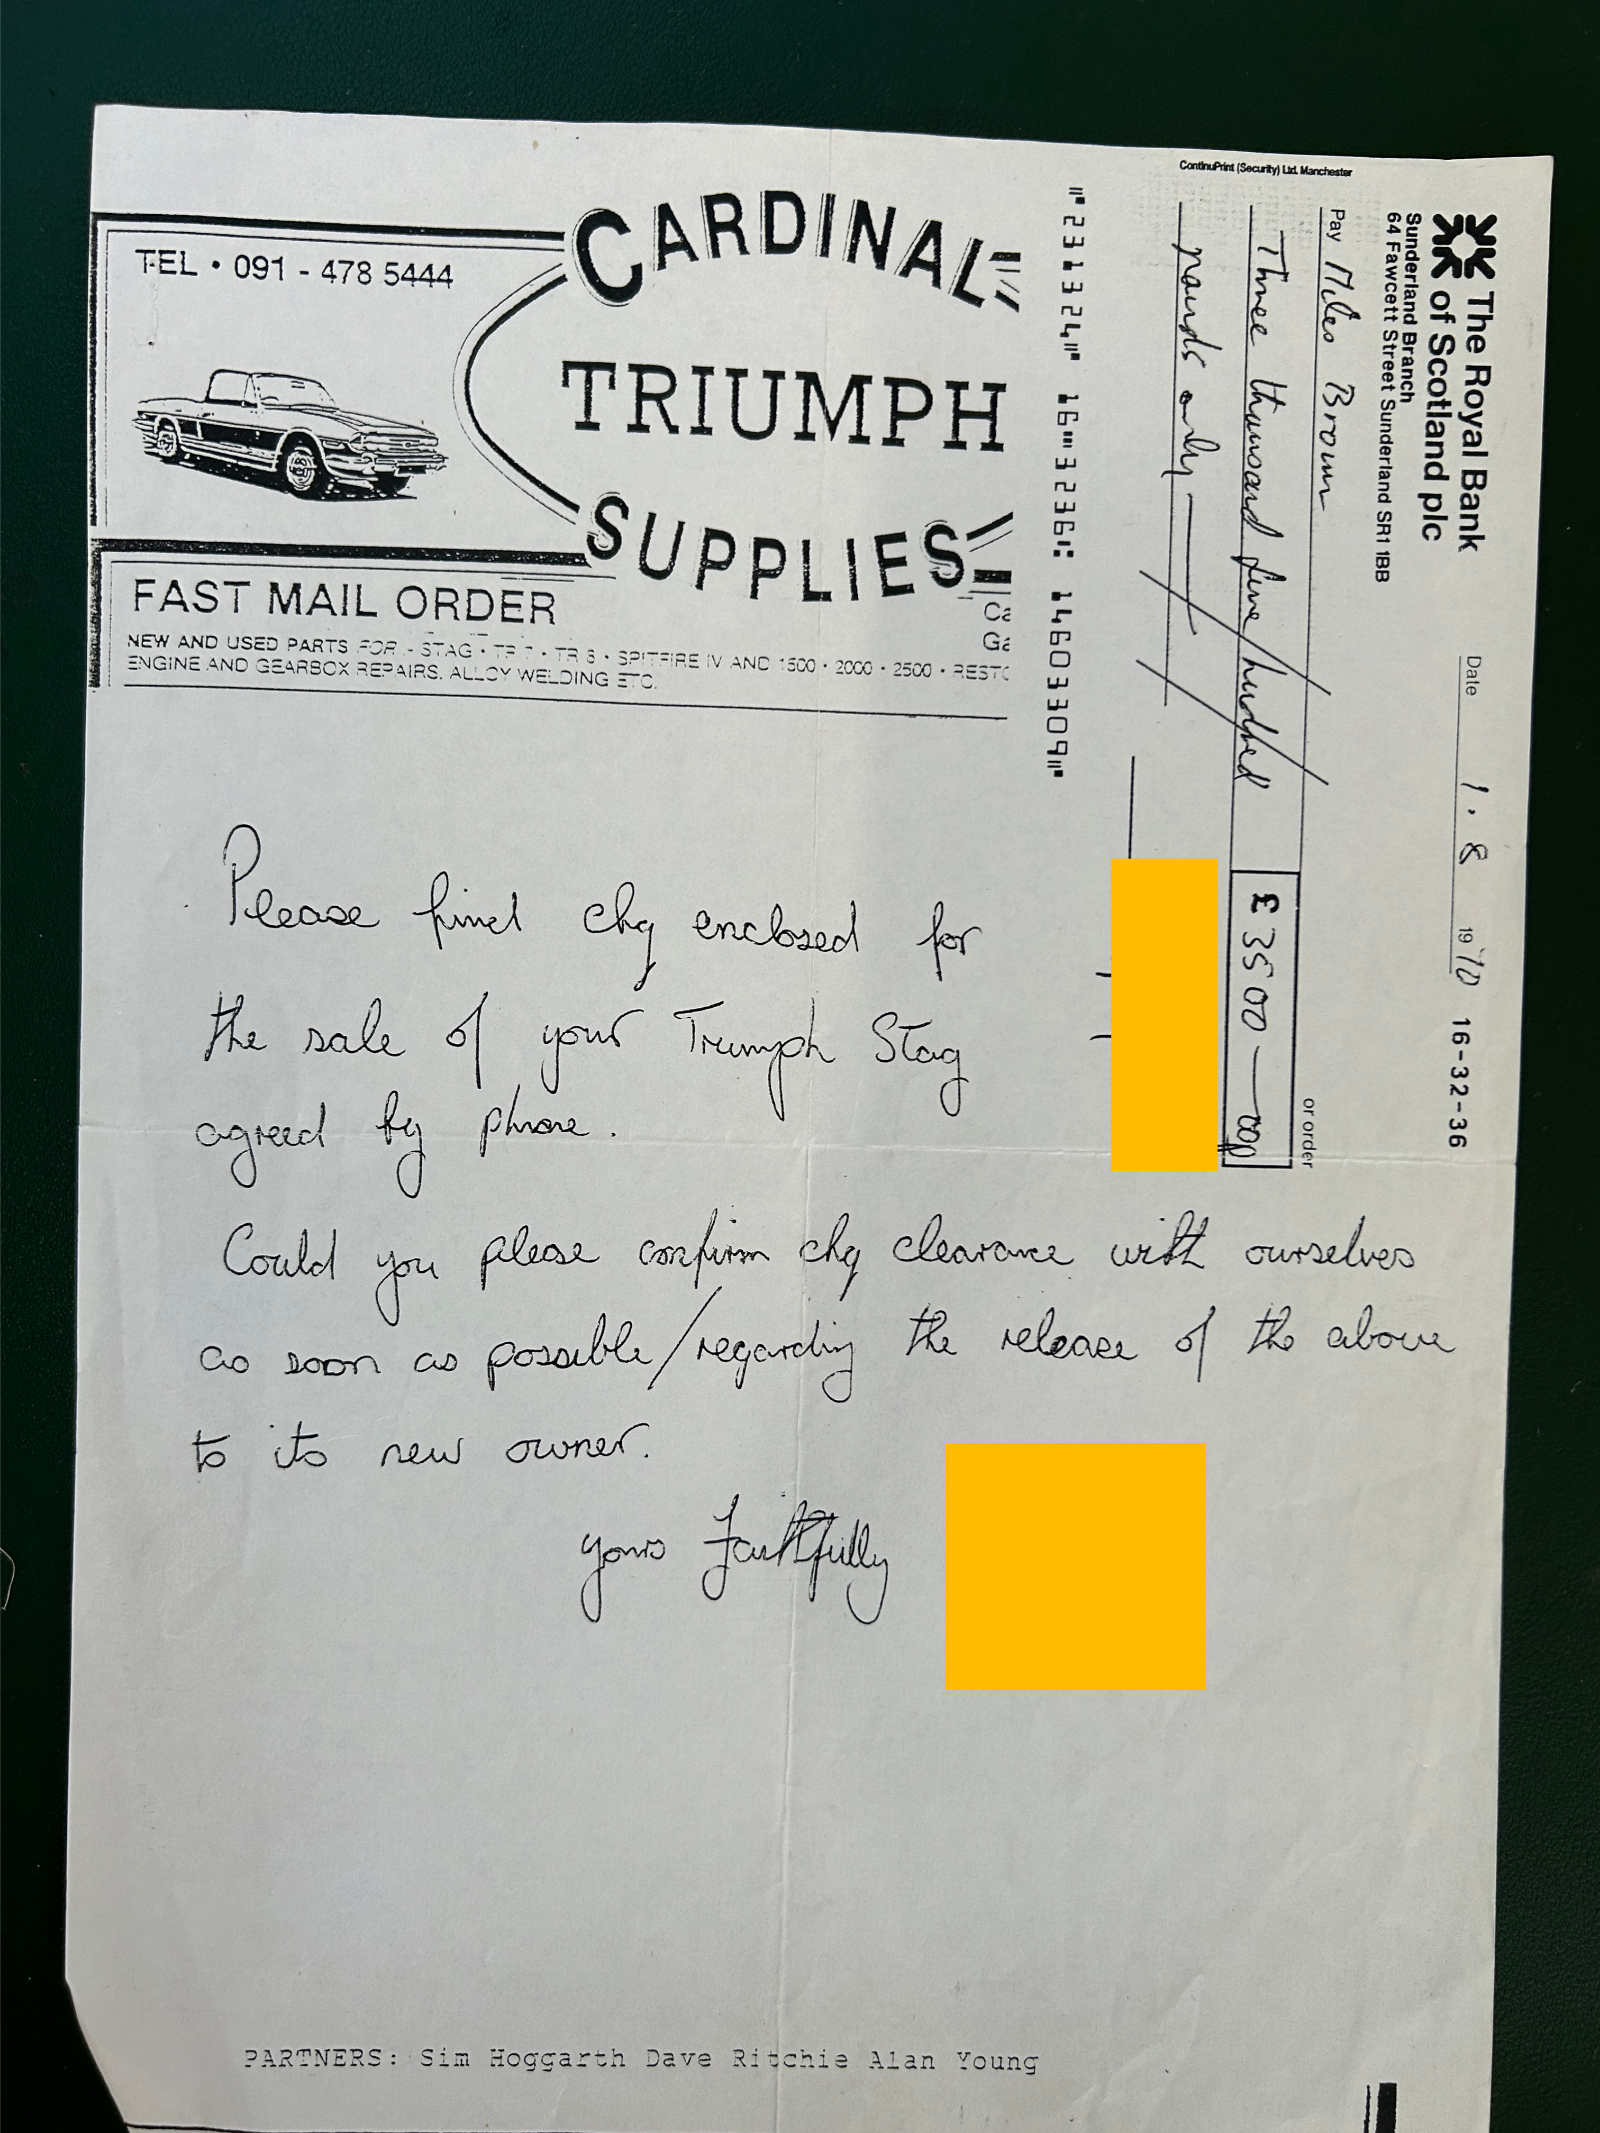 CARDINAL
TEL • 091 - 478 5444
TRIUMPH
SUPPLIES
FAST MAIL ORDER
Ca
NEW AND USED PARTS FOR - STAG • TR 7 • TR 6 • SPITFIRE IV AND 1500 • 2000 • 2500 • RESTO
Ga
ENGINE AND GEARBOX REPAIRS. ALLOY WELDING ETC.
The Royal Bank
of Scotland plc
Sunderland Branch
64 Fawcett Street Sunderland SR1 1BB
Date 1.8 19 16-32-36
Pay Miles Brown
or order
Three thousand five hundred
£ 3500 — 00p
pounds only
ContinuPrint (Security) Ltd. Manchester
⑈231324⑈ 16⑉3236⑆ 14603309⑈
Please find chq enclosed for
the sale of your Triumph Stag
agreed by phone.
Could you please confirm chq clearance with ourselves
as soon as possible/regarding the release of the above
to its new owner.
yours Faithfully
PARTNERS: Sim Hoggarth Dave Ritchie Alan Young